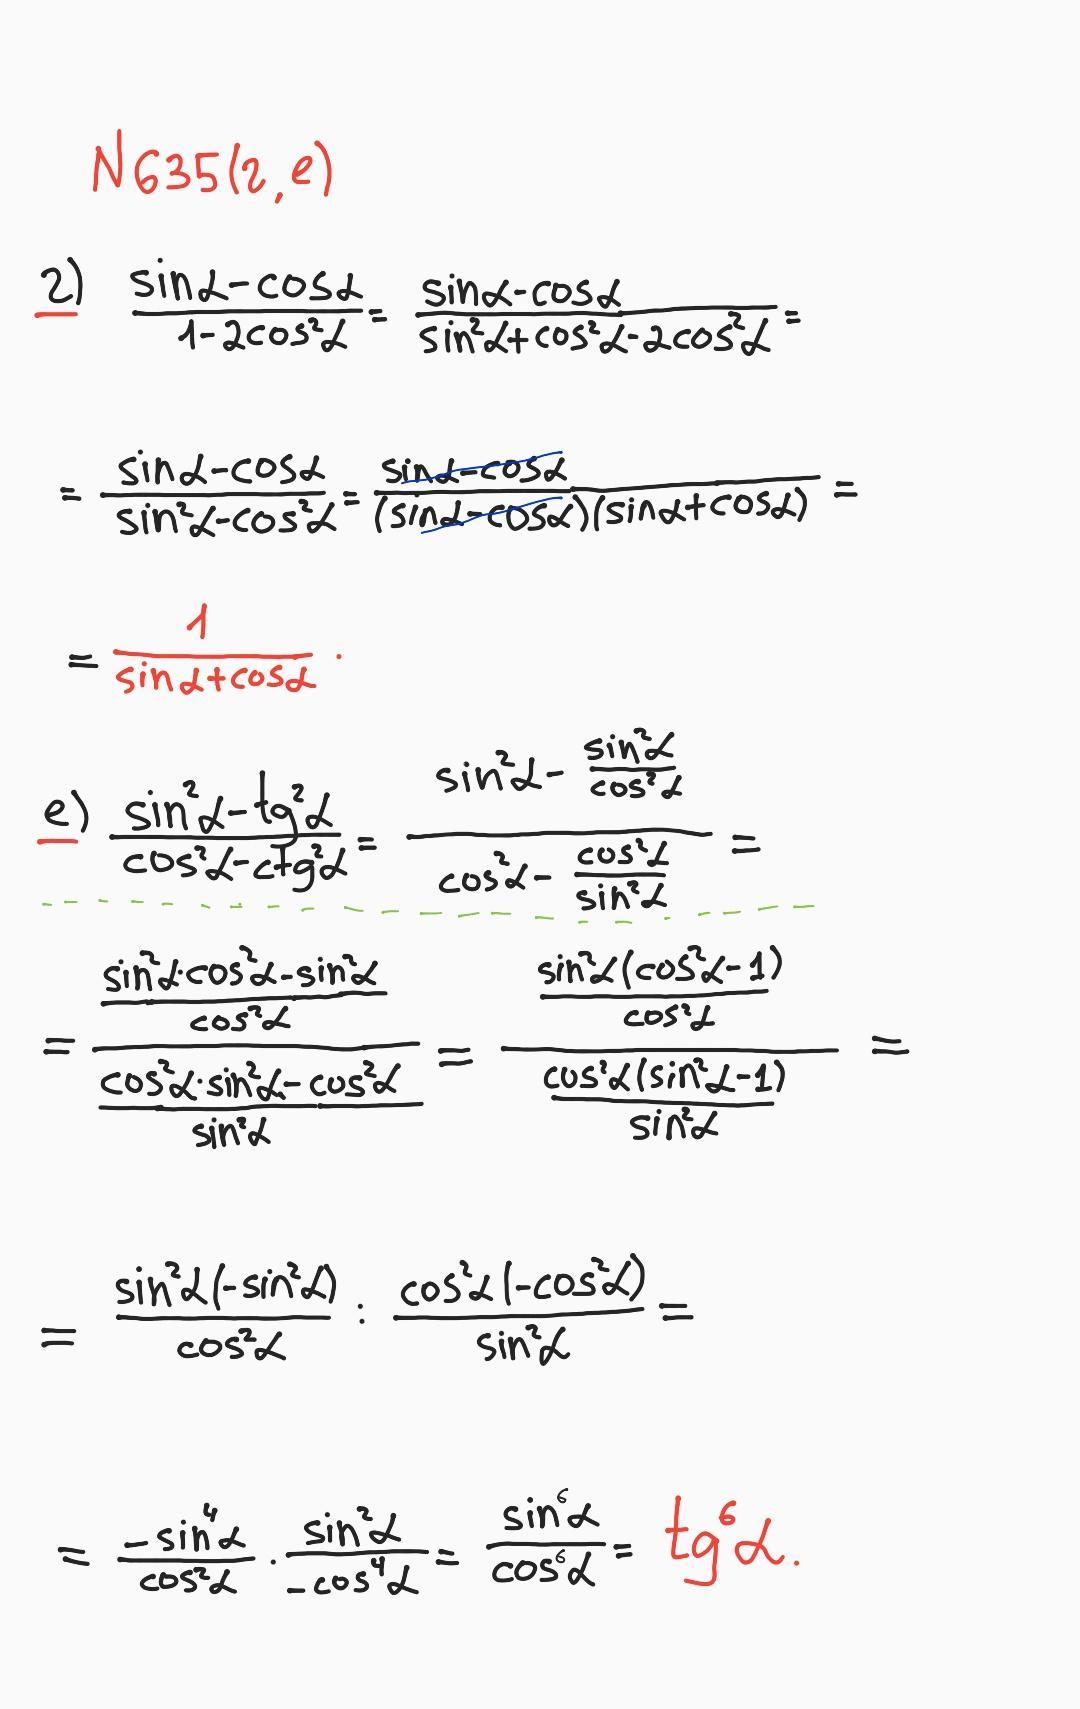 N635(г, е)
г) (sinα-cosα)/(1-2cos²α) = (sinα-cosα)/(sin²α+cos²α-2cos²α) =
= (sinα-cosα)/(sin²α-cos²α) = (sinα-cosα)/((sinα-cosα)(sinα+cosα)) =
= 1/(sinα+cosα) .
е) (sin²α-tg²α)/(cos²α-ctg²α) = (sin²α- sin²α/cos²α)/(cos²α- cos²α/sin²α) =
= ((sin²α·cos²α-sin²α)/cos²α)/((cos²α·sin²α-cos²α)/sin²α) = ((sin²α(cos²α-1))/cos²α)/((cos²α(sin²α-1))/sin²α) =
= (sin²α(-sin²α))/cos²α : (cos²α(-cos²α))/sin²α =
= (-sin⁴α)/cos²α · sin²α/(-cos⁴α) = sin⁶α/cos⁶α = tg⁶α.